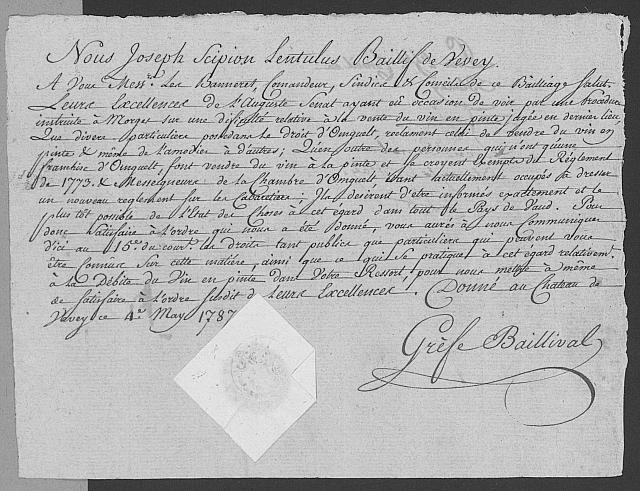 Nous Joseph Scipion Lentulus Baillif de Vevey.
A Vous Messrs. Les Banneret, Comandeur, Sindics & Conseils de ce Bailliage Salut.
Leurs Excellences de l'Auguste Senat ayant eü occasion de voir par une procédure
instruite à Morges sur une difficulté relative à la vente du vin en pinte jugée en dernier lieu,
Que divers particuliers possedans le Droit d'Omguelt, reclament celui de vendre du vin en
pinte & même de l'amodier à d'autres; Qu'en outre des personnes qui n'ont qu'une
franchise d'Omguelt, font vendre du vin à la pinte et se croyent exempts du Règlement
de 1773. & Messeigneurs de la Chambre d'Omguelt etant actuellement occupés à dresser
un nouveau reglement sur les Cabaretiers; Ils désirent d'être informés exactement et le
plus tôt possible de l'Etat des Choses à cet egard dans tout le Pays de Vaud. Pour
donc Satisfaire à l'Ordre qui nous a été Donné, vous aurés à nous Communiquer
d'ici au 15e. du cour.t les Droits tant publics que particuliers qui peuvent vous
être Connus Sur cette matière, ainsi que ce qui se pratique à cet egard relativem.t
à la Débite du Vin en pinte dans Votre Ressort, pour nous mettre à même
de Satisfaire à l'Ordre susdit de Leurs Excellences. Donné au Château de
Vevey ce 4e May 1787
Grèfe Baillival